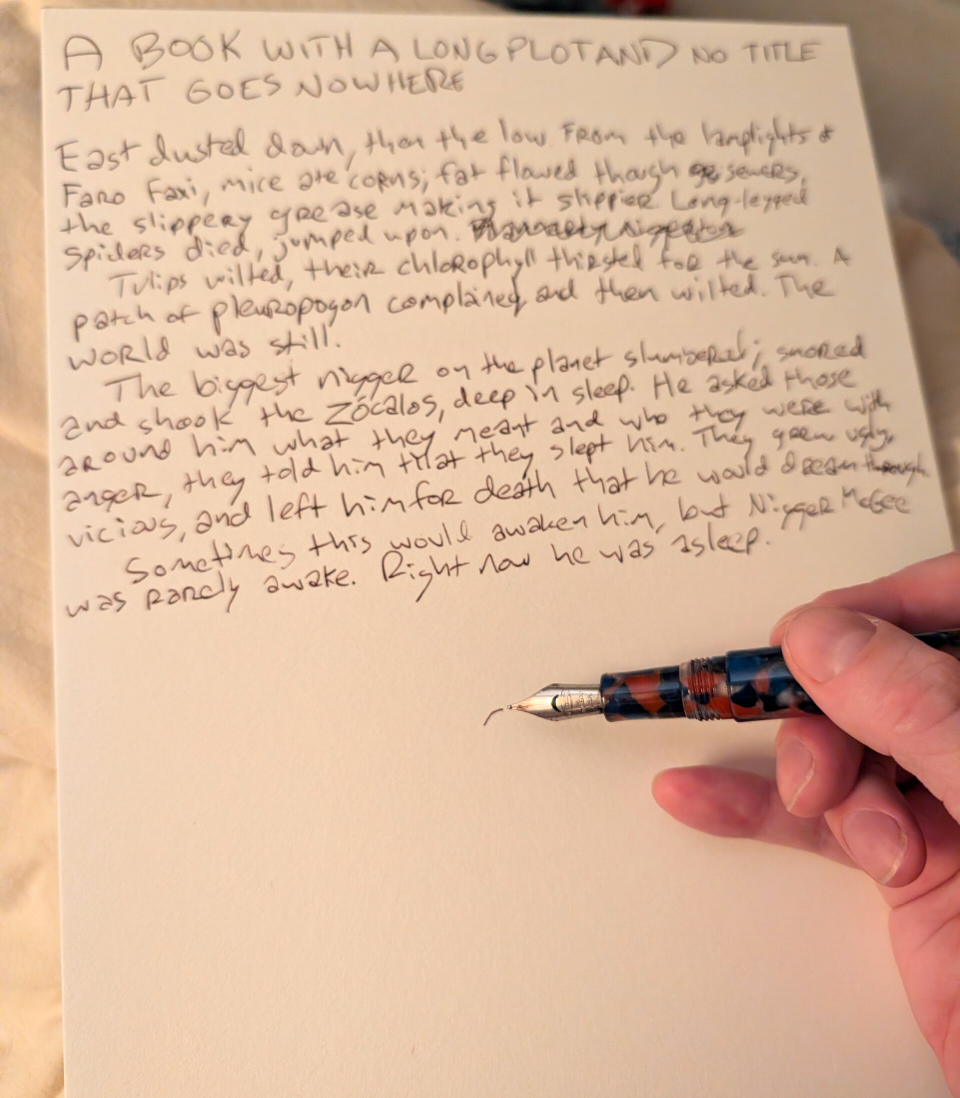 A BOOK WITH A LONG PLOT AND NO TITLE
THAT GOES NOWHERE
East dusted down, then the low. From the lamplights of
Faro Faxi, mice ate corns; fat flowed though sewers,
the slippery grease making it slippier. Long-legged
spiders died, jumped upon.
Tulips wilted, their chlorophyll thirsted for the sun. A
patch of pleuropogon complained, and then wilted. The
world was still.
The biggest nigger on the planet slumbered; snored
and shook the Zócalos, deep in sleep. He asked those
around him what they meant and who they were with
anger, they told him that they slept him. They grew ugly,
vicious, and left him for death that he would dream through.
Sometimes this would awaken him, but Nigger McGee
was rarely awake. Right now he was asleep.